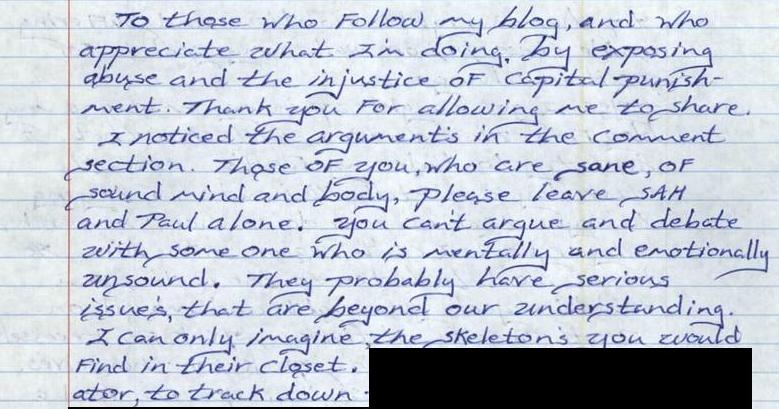 To those who follow my blog, and who
appreciate what I'm doing, by exposing
abuse and the injustice of capital punish-
ment. Thank you for allowing me to share.
I noticed the argument's in the comment
section. Those of you, who are sane, of
sound mind and body, please leave SAH
and Paul alone. You can't argue and debate
with some one who is mentally and emotionally
unsound. They probably have serious
issue's, that are beyond our understanding.
I can only imagine, the skeleton's you would
find in their closet.
ator, to track down